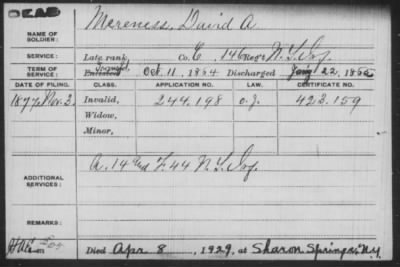 DEAD
NAME OF SOLDIER: Mereness, David A.
SERVICE: Late rank, Co. C, 146 Reg't N.Y. Inf.
TERM OF SERVICE: Enlisted Oct. 11, 1864 Discharged 22, 186
DATE OF FILING. CLASS. APPLICATION NO. LAW. CERTIFICATE NO.
187 Invalid, 244.198 423.159
Widow,
Minor,
ADDITIONAL SERVICES: A. 14 & F. 44 N.Y. Inf.
REMARKS:
Died Apr 8, 1929, at Sharon Springs, N.Y.